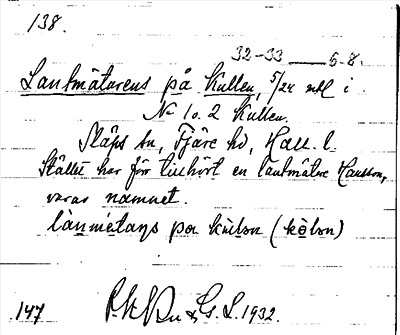 138.
32-33 ___ 6-8.
Lantmätarens på Kullen, 5/24 mtl i
No 1 o. 2 Kullen.
Släps sn, Fjäre hd, Hall. l.
Stället har förr tillhört en lantmätare Hansson,
varav namnet.
lànmétans pa kùlən (kòlən)
147 G. S. 1932.